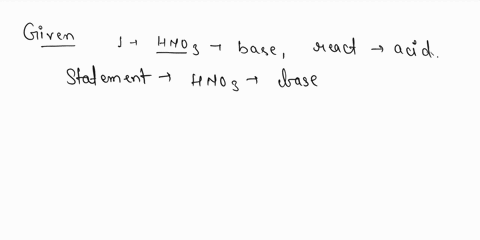 Given 1 → HNO3 → base, react → acid.
Statement → HNO3 → base